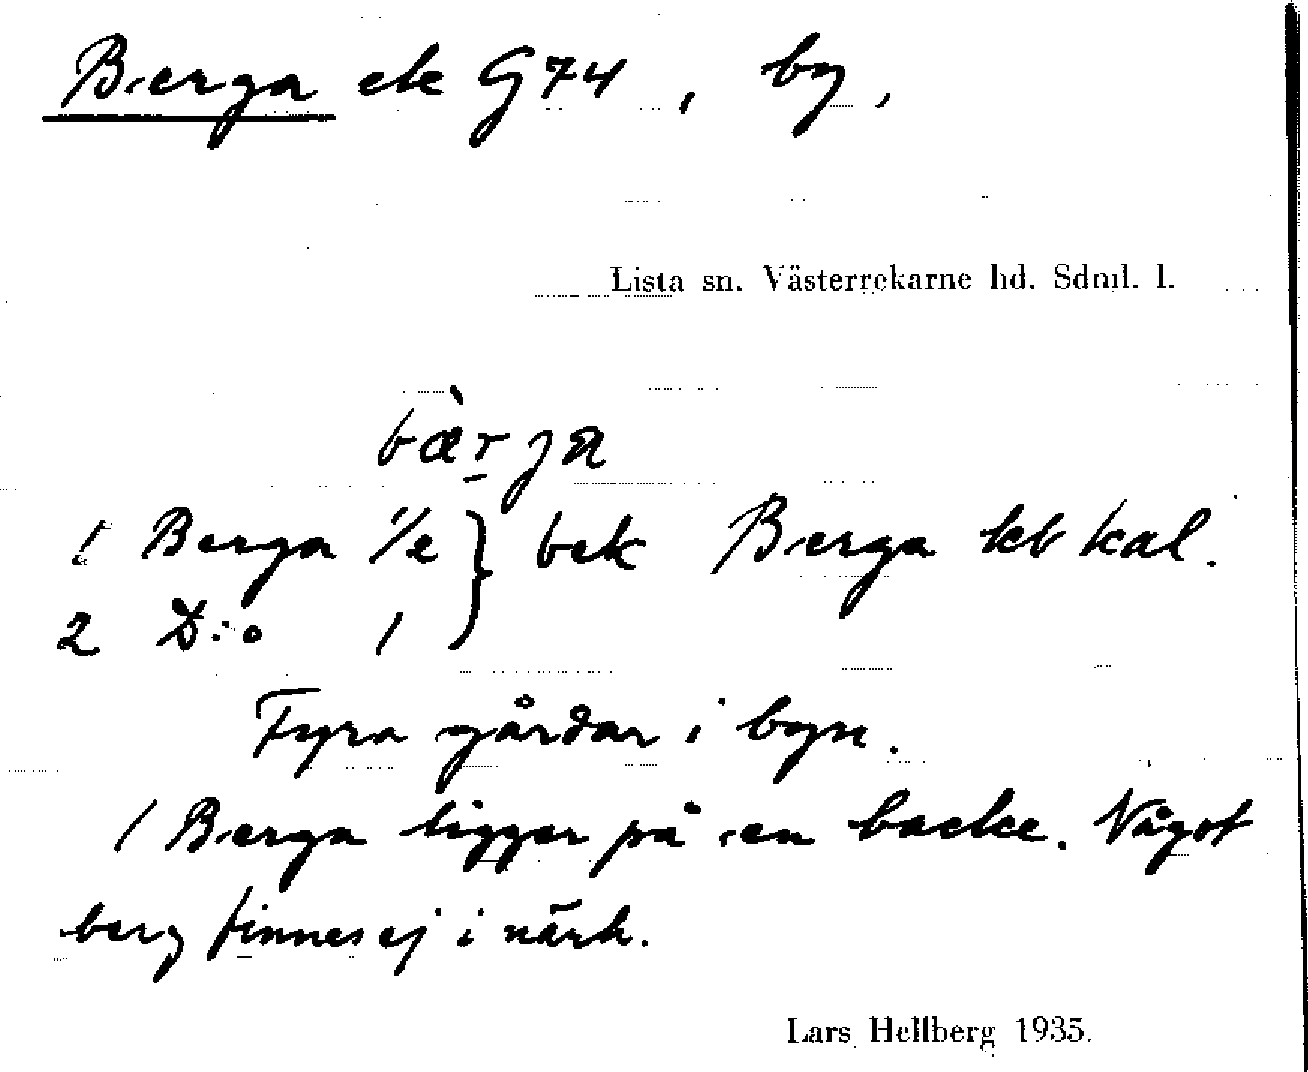 Berga ek G74, by,
Lista sn. Västerrekarne hd. Sdml. l.
bæ̀rja
1 Berga 1/2 } bek Berga kb kal.
2 D:o 1
Fyra gårdar i byn.
1 Berga ligger på en backe. Något
berg finnes ej i närh.
Lars Hellberg 1935.